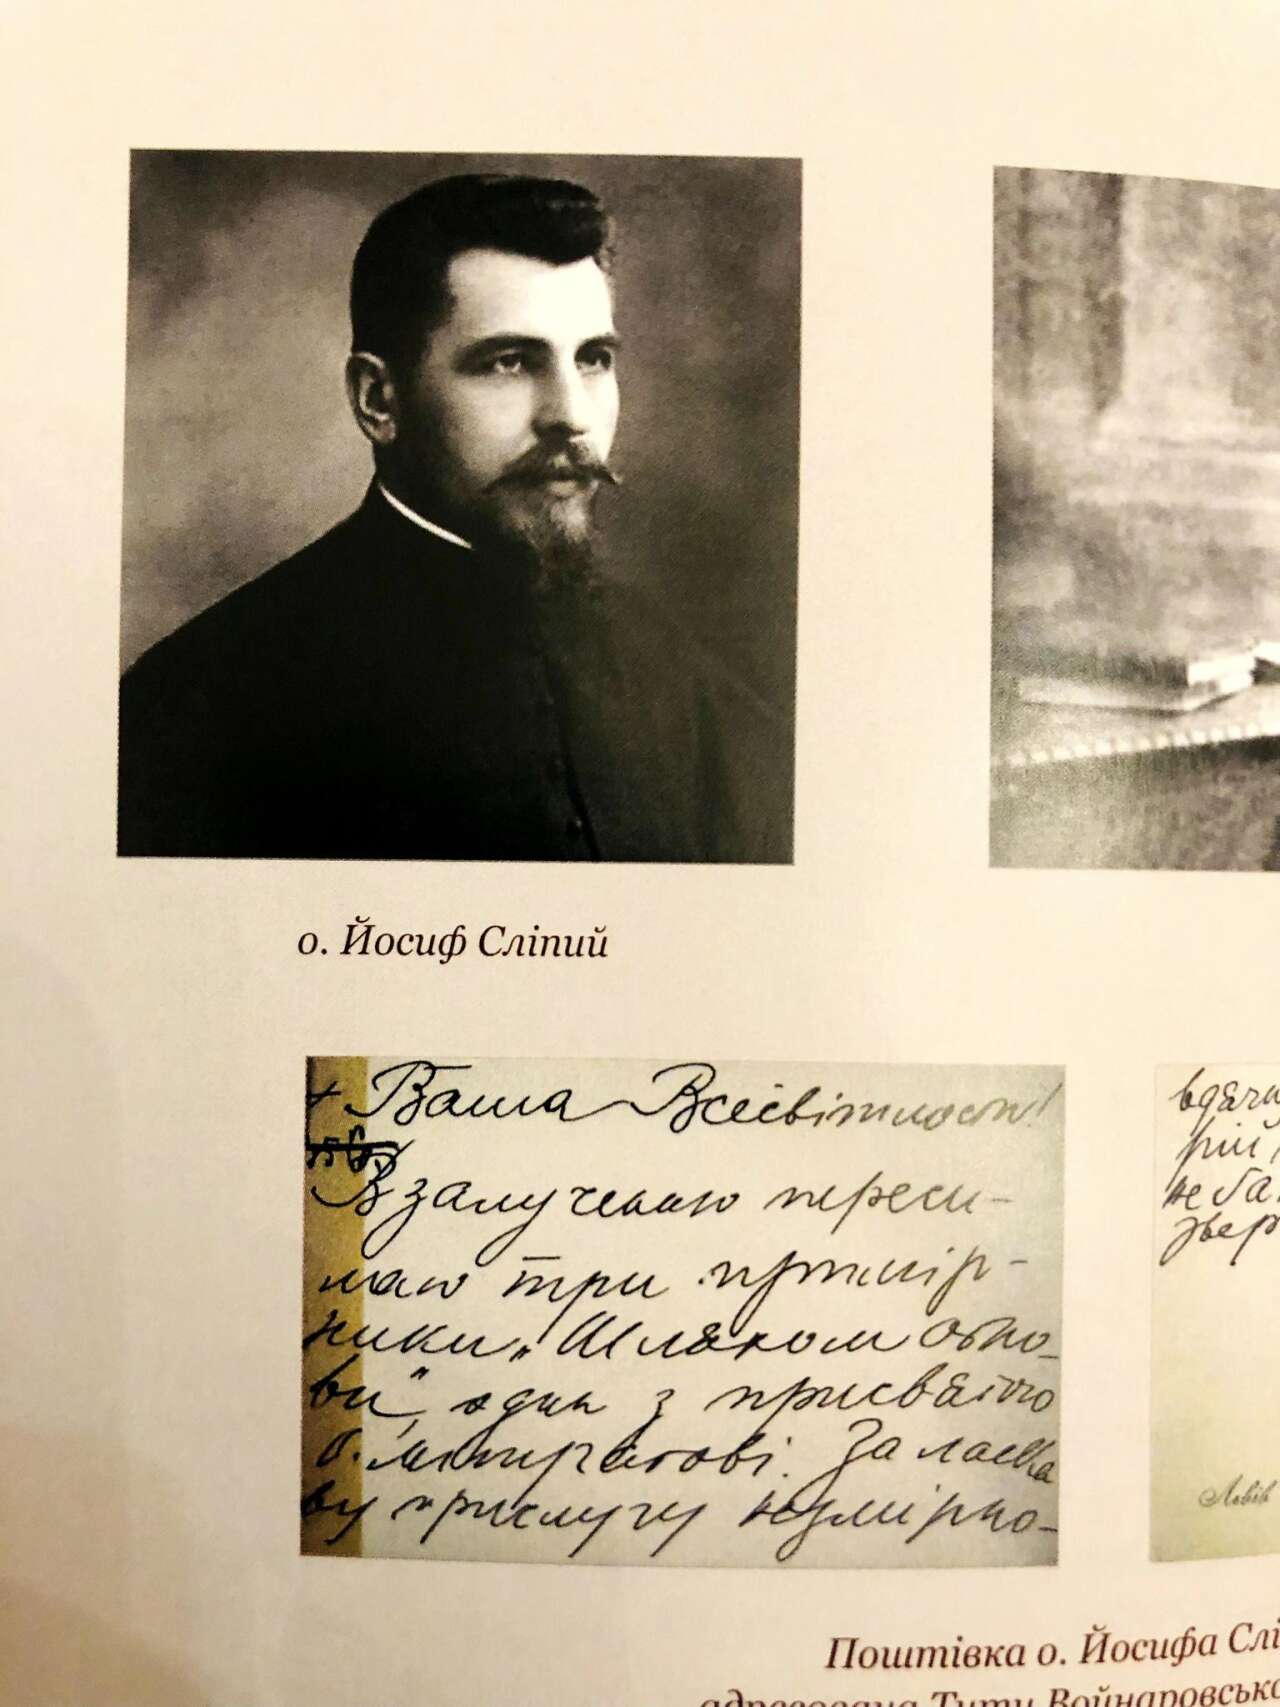 о. Йосиф Сліпий
Ваша Всесвітлосте!
В залученню переси-
лаю три примір-
ники „Шляхом обно-
ви", один з присвятою
о. митратові. За ласка
ву прислугу незмірно-
вдячн
рій
не ба
звер
Львів
Поштівка о. Йосифа Слі
адресована Титу Войнаровсько